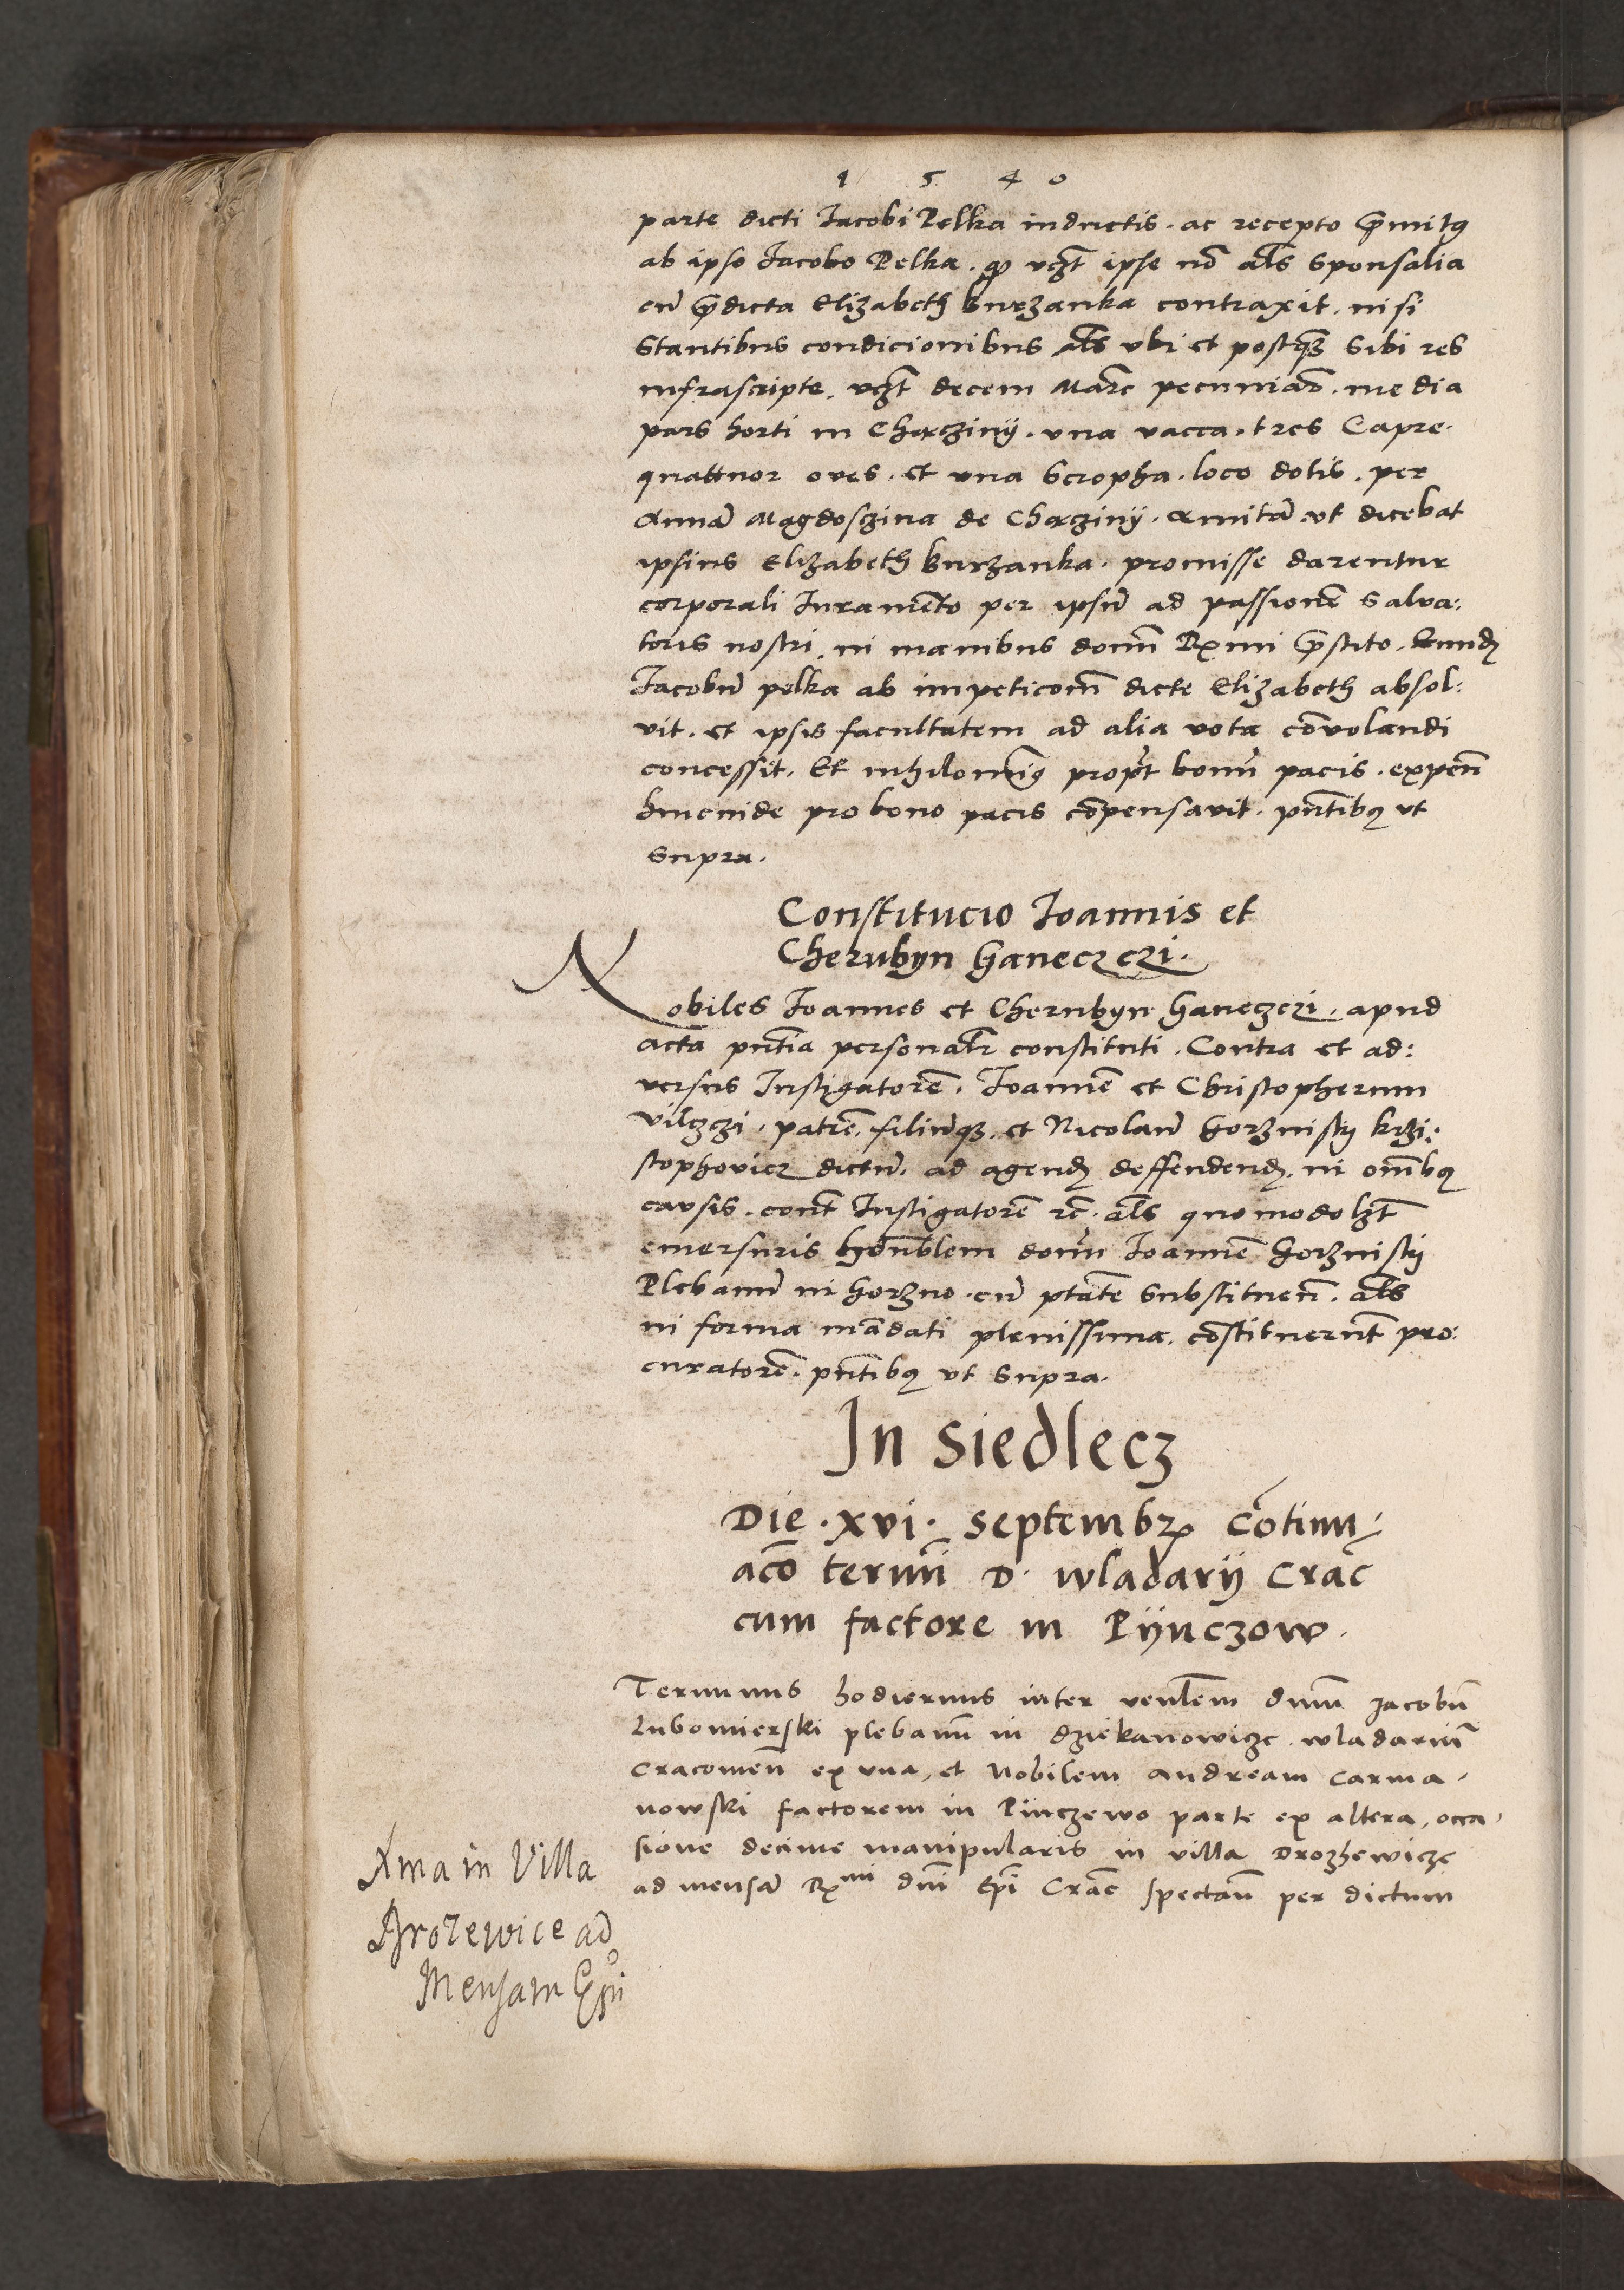 1 5 4 0
parte dicti Jacobi Pelka inductis. ac recepto p̄mitꝰ
ab ipso Jacobo Pelka. ꝙ vꝫt ipse nō als̄ Sponsalia
cū p̄dicta Elizabeth Burzanka contraxit. nisi
Stantibus condicionibus als̄ vbi et postqꝫ Sibi res
infrascripte. vꝫt decem Marc̄ pecuniaꝝ. media
pars horti in Charziny. vna vacca. tres Capre.
quattuor oves. et vna Scropha. loco dotis. per
Annā Magdosczina de Charziny. amitā vt dicebat
ipsius Elizabeth Burzanka. promisse darentur
corporali Juramēto per ipsū ad passionē Salva:
toris nostri. in manibus domn̄ Rx̄mi p̄stito. Eundē
Jacobū pelka ab impeticom̄ dicte Elizabeth absol:
vit. et ipsis facultatem ad alia vota cōvolandi
concessit. Et nihilomīꝰ propt̄ bonū pacis. expen̄
hincinde pro bono pacis cōpensavit. pn̄tibꝰ vt
Supra.
Constitucio Joannis et
Cherubyn Ganeczczi.
Nobiles Joannes et Cherubyn Ganeczczi. apud
acta pn̄tia personalr̄ constituti. Contra et ad:
versus Instigatorē. Joannē et Christopherum
Vilczczi. patrē. filiūqꝫ. et Nicolaū Gorznisky krzi:
stophovicz dictū. ad agendū deffendendū. in om̄ibꝰ
causis. cont̄ Instigatorē rc̄. als̄ quomodolꝫt
emersuris hōn̄blem domū Joannē Gorznisky
Plebanū in Gorzno. cū ptāte Substituen̄. als̄
in forma mādati plenissima. cōstituerūt pro:
curatorē. pn̄tibꝰ vt Supra.
In Siedlecz
Die. xvi. Septembꝝ Cōtinu:
acō termī D. wladarij Crac̄
cum factore in Pijnczow.
Terminus hodiernus inter venlēm dnūm Jacobū
Lubomierski plebanū in dziekanowicze. wladariū
Cracouien̄ ex vna, et Nobilem Andream Carma-
nowski factorem in Pinczewo parte ex altera, occa-
sione decime manipularis in villa Drozhewicze
ad mensā Rxmi dnī Epī Crac̄ spectān̄ per dictum
Xma in Villa
Drozewice ad
Mensam Epi